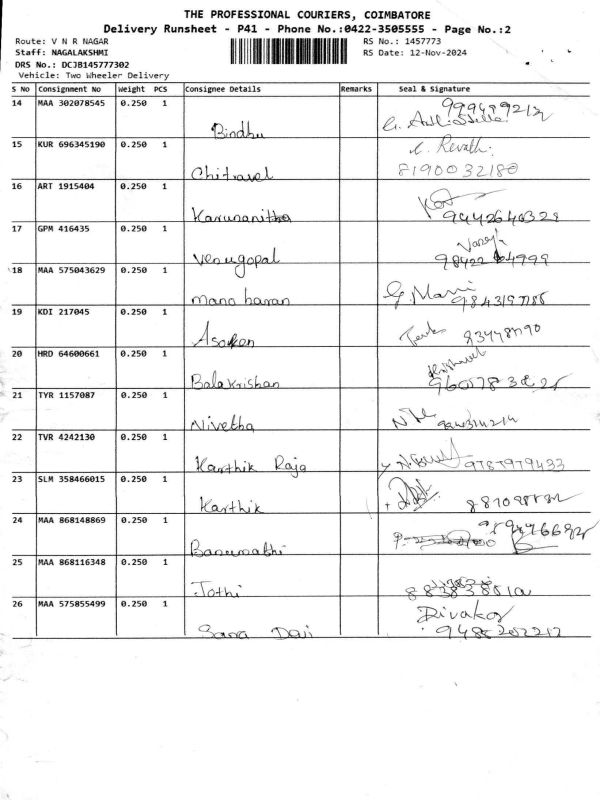 THE PROFESSIONAL COURIERS, COIMBATORE
Delivery Runsheet - P41 - Phone No.:0422-3505555 - Page No.:2
Route: V N R NAGAR RS No.: 1457773
Staff: NAGALAKSHMI RS Date: 12-Nov-2024
DRS No.: DCJB145777302
Vehicle: Two Wheeler Delivery
S No Consignment No Weight PCS Consignee Details Remarks Seal & Signature
14 MAA 302078545 0.250 1
Bindhu
15 KUR 696345190 0.250 1 Revath
Chitravel 8190032180
16 ART 1915404 0.250 1
Karunanitha 9442640329
17 GPM 416435 0.250 1
Venugopal
18 MAA 575043629 0.250 1
Mano haran G. Mani
19 KDI 217045 0.250 1
Asoken
20 HRD 64600661 0.250 1
Balakrishan
21 TYR 1157087 0.250 1
Nivetha
22 TVR 4242130 0.250 1
Karthik Raja 9787979433
23 SLM 358466015 0.250 1
Karthik
24 MAA 868148869 0.250 1
Banumathi
25 MAA 868116348 0.250 1
Jothi
26 MAA 575855499 0.250 1 Divakar